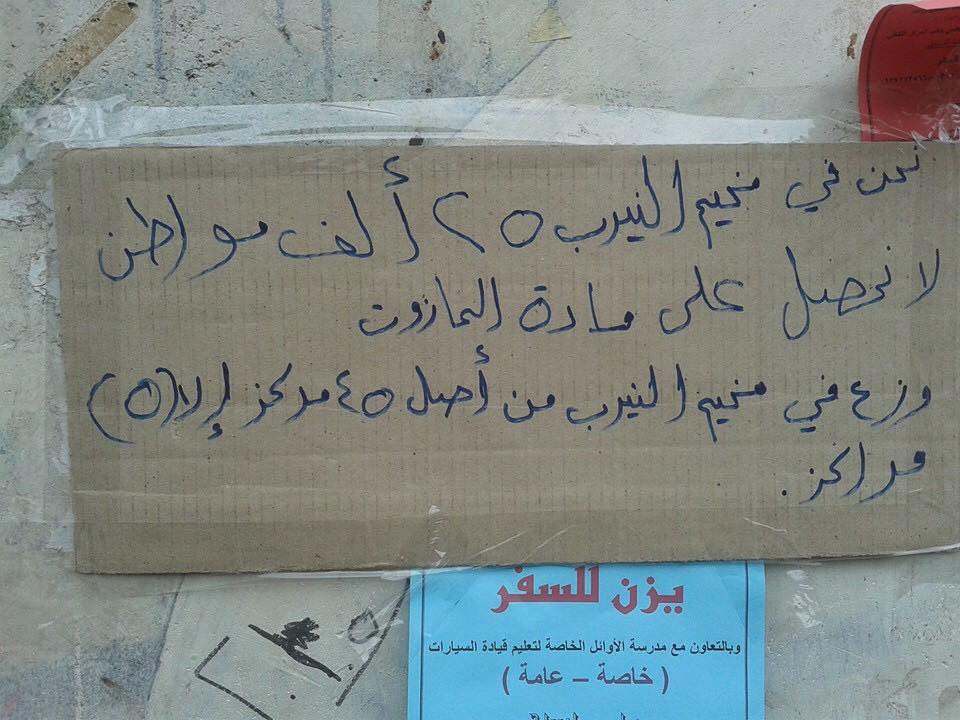 نحن في مخيم النيرب ٢٥ ألف مواطن
لا نحصل على مادة المازوت
وزع في مخيم النيرب من أصل ٤٥ مركز إلا (٥)
مراكز .
يزن للسفر
وبالتعاون مع مدرسة الأوائل الخاصة لتعليم قيادة السيارات
( خاصة – عامة )